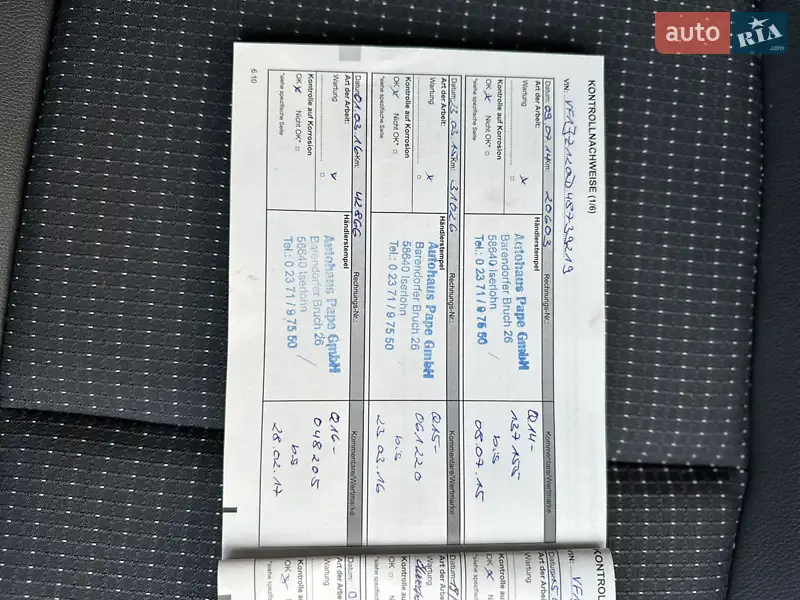 auto RIA.com
KONTROLLNACHWEISE (1/6)
VIN: VF1JZ1200D48739219
Datum: 09.07.14 Km: 20603
Rechnungs-Nr.:
Kommentare/Wertmarke
Art der Arbeit:
Händlerstempel
Wartung x
Kontrolle auf Korrosion
OK x Nicht OK* □
*siehe spezifische Seite
Autohaus Pape GmbH
Barendorfer Bruch 26
58640 Iserlohn
Tel.: 0 23 71 / 9 75 50
Q14-
137155
bis
08.07.15
Datum: 23.03.15 Km: 31026
Rechnungs-Nr.:
Kommentare/Wertmarke
Art der Arbeit:
Händlerstempel
Wartung x
Kontrolle auf Korrosion
OK x Nicht OK* □
*siehe spezifische Seite
Autohaus Pape GmbH
Barendorfer Bruch 26
58640 Iserlohn
Tel.: 0 23 71 / 9 75 50
Q15-
061220
bis
23.03.16
Datum: 01.03.16 Km: 42866
Rechnungs-Nr.:
Kommentare/Wertmarke
Art der Arbeit:
Händlerstempel
Wartung x
Kontrolle auf Korrosion
OK x Nicht OK* □
*siehe spezifische Seite
Autohaus Pape GmbH
Barendorfer Bruch 26
58640 Iserlohn
Tel.: 0 23 71 / 9 75 50
Q16-
048205
bis
28.02.17
6.10
KONTROL
VIN: VF1
Datum:
Art der Arbeit
Wartung
Kontrolle au
OK x
*siehe spezifisc
Datum:
Art der Arb
Wartung
Kontrolle a
OK □
*siehe spezifi
Datum: 0
Art der Ar
Wartung
Kontrolle
OK x
*siehe spezif